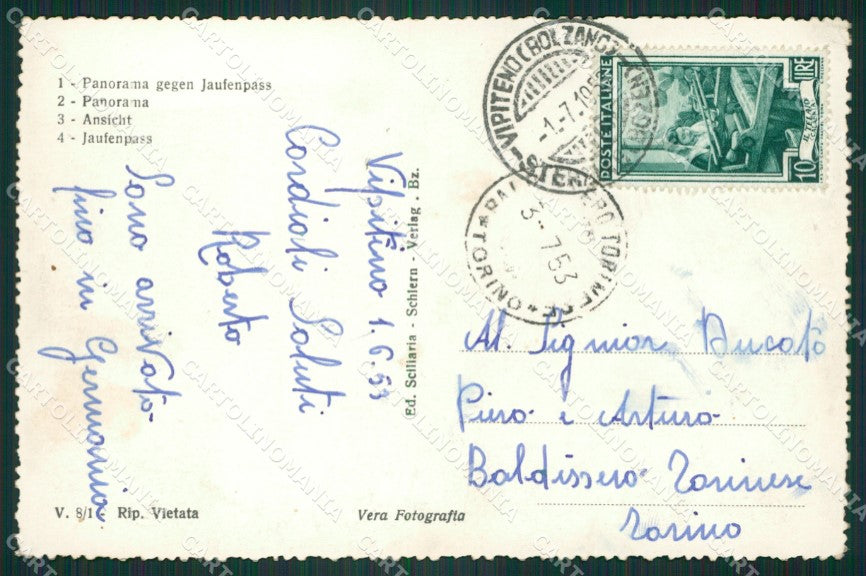 1 - Panorama gegen Jaufenpass
2 - Panorama
3 - Ansicht
4 - Jaufenpass
Vipitino 1.6.53
Cordiali Saluti
Roberto
Sono arrivato
fino in Germania
V. 8/1 - Rip. Vietata
Vera Fotografia
Ed. Sciliaria - Schlern - Verlag - Bz.
VIPITENO (BOLZANO)
-1.-7.1953
STERZING (BOLZANO)
POSTE ITALIANE
10 LIRE
3-7.53
TORINESE
* TORINO *
Al. Signior Bucato
Piero e Arturo
Baldissero Torinese
Torino
CARTOLINOMANIA